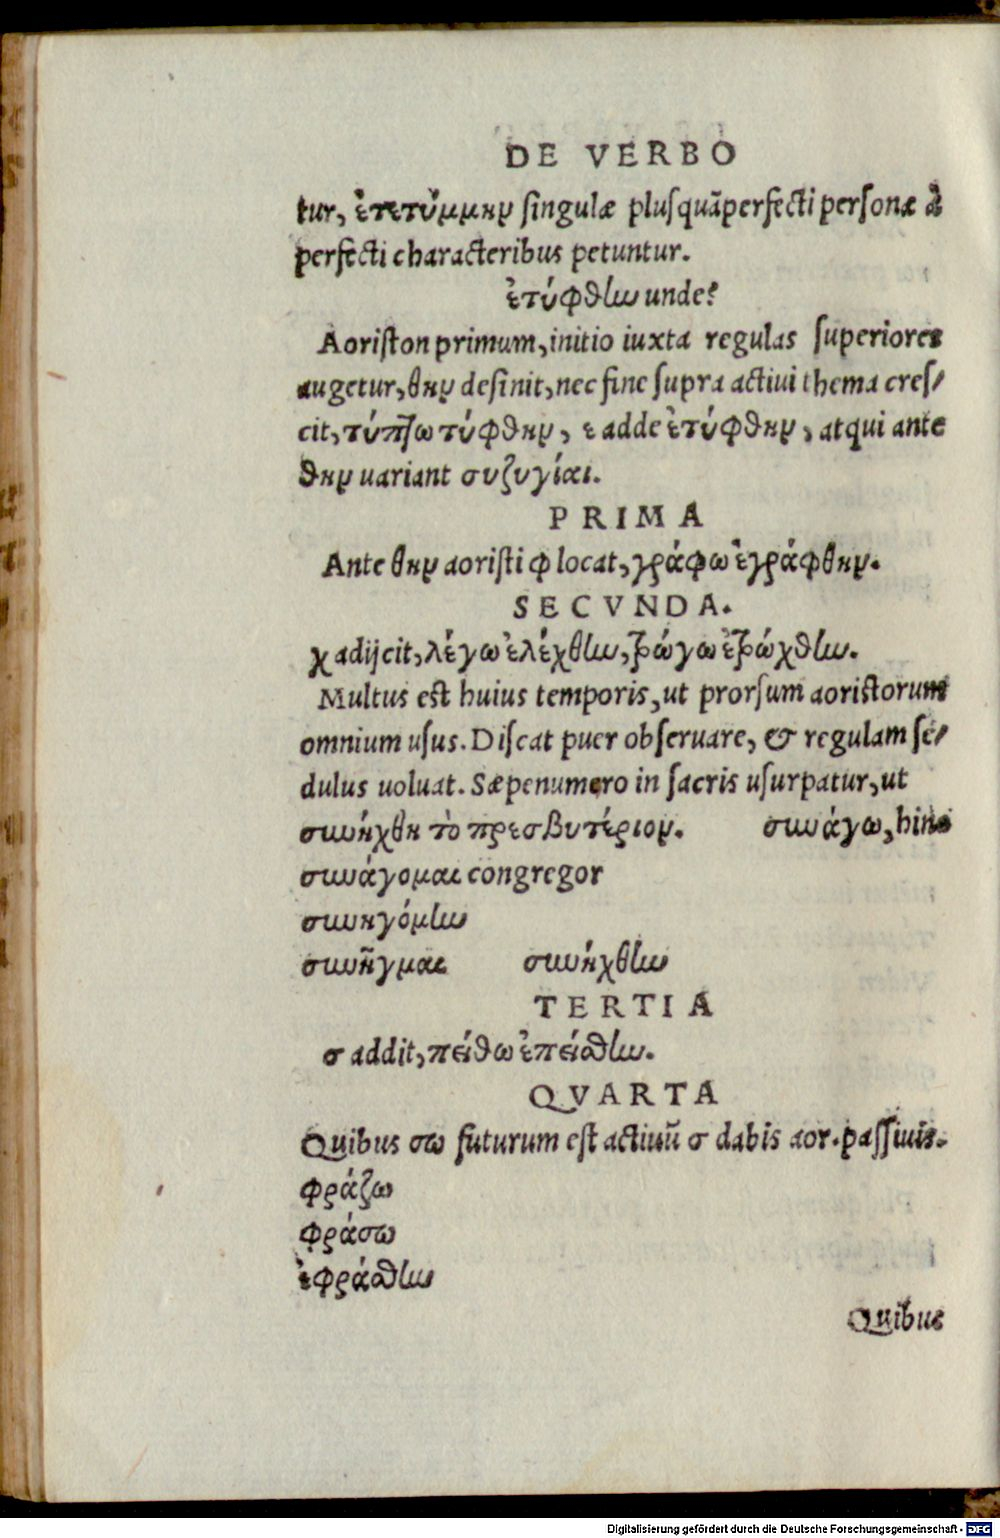 DE VERBO
tur, ἐτετύμμην ſingulæ pluſquãperfecti perſonæ à
perfecti characteribus petuntur.
ἐτύφθην unde?
Aoriſton primum, initio iuxta regulas ſuperiores
augetur, θην deſinit, nec fine ſupra actiui thema creſ/
cit, τύπτω τύφθην, ε adde ἐτύφθην, atqui ante
θην uariant συζυγίαι.
PRIMA
Ante θην aoriſti φ locat, γράφω ἐγράφθην.
SECVNDA.
χ adijcit, λέγω ἐλέχθην, τρώγω ἐτρώχθην.
Multus est huius temporis, ut prorſum aoristorum
omnium uſus. Diſcat puer obſeruare, & regulam ſe/
dulus uoluat. Sæpenumero in ſacris uſurpatur, ut
συνήχθη τὸ πρεσβυτέριον. συνάγω, hinc
συνάγομαι congregor
συνηγόμην
συνῆγμαι συνήχθην
TERTIA
σ addit, πείθω ἐπείσθην.
QVARTA
Quibus σω futurum eſt actiuũ σ dabis aor. paſſiuis.
φράζω
φράσω
ἐφράσθην
Quibus
Digitalisierung gefördert durch die Deutsche Forschungsgemeinschaft - DFG